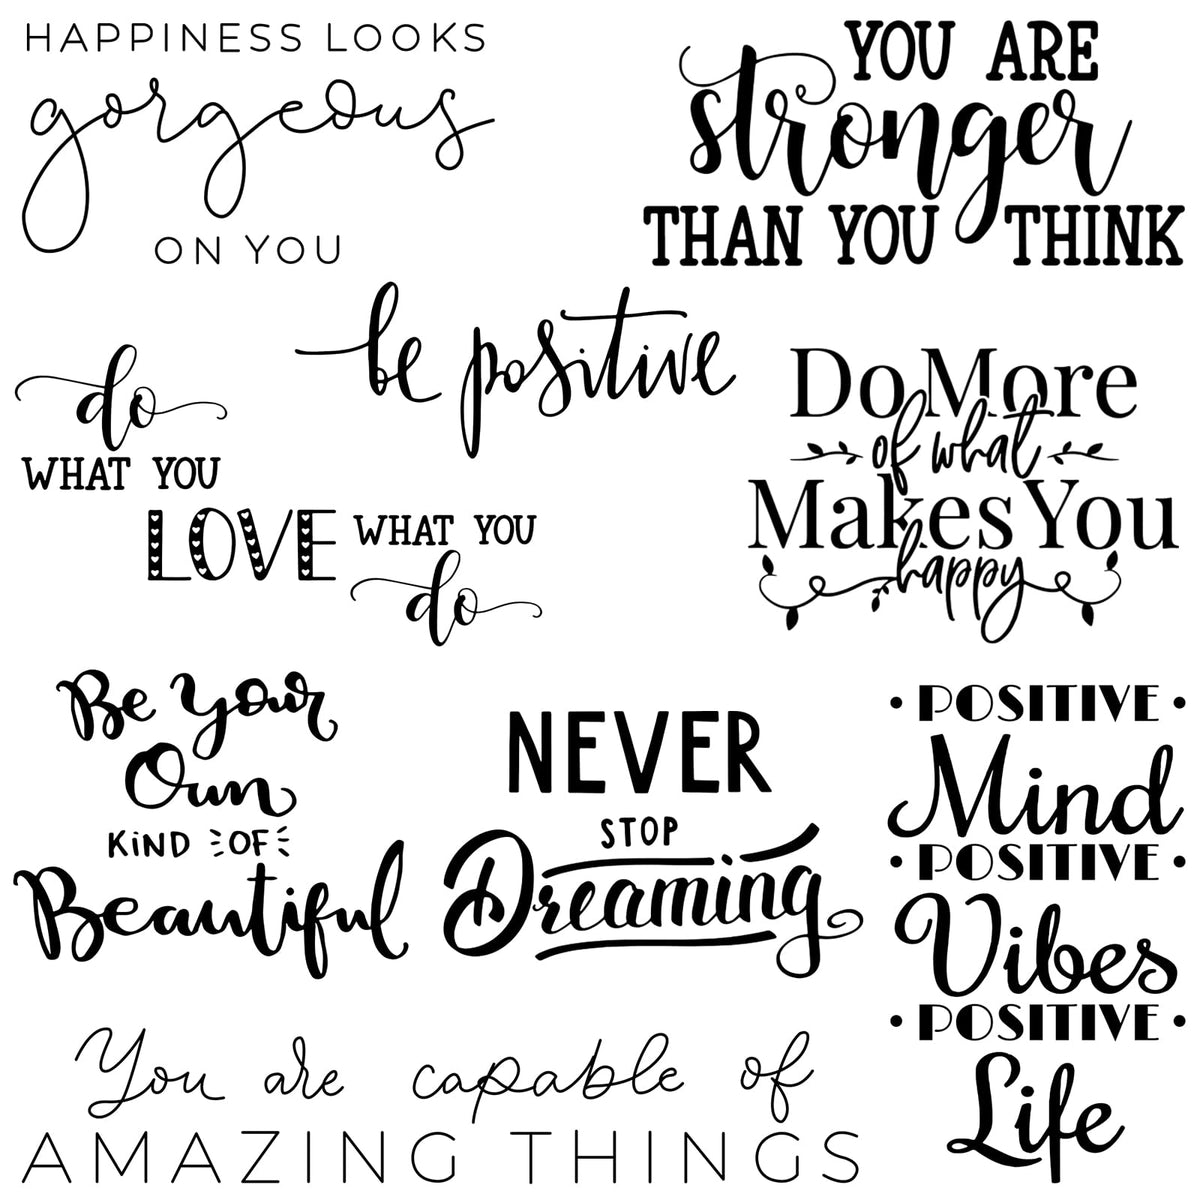 HAPPINESS LOOKS
gorgeous
ON YOU
YOU ARE
stronger
THAN YOU THINK
be positive
do
WHAT YOU
LOVE WHAT YOU
do
Do More
of what
Makes You
happy
Be Your
Own
KiND OF
Beautiful
NEVER
STOP
Dreaming
• POSITIVE •
Mind
• POSITIVE •
Vibes
• POSITIVE •
Life
You are capable of
AMAZING THINGS